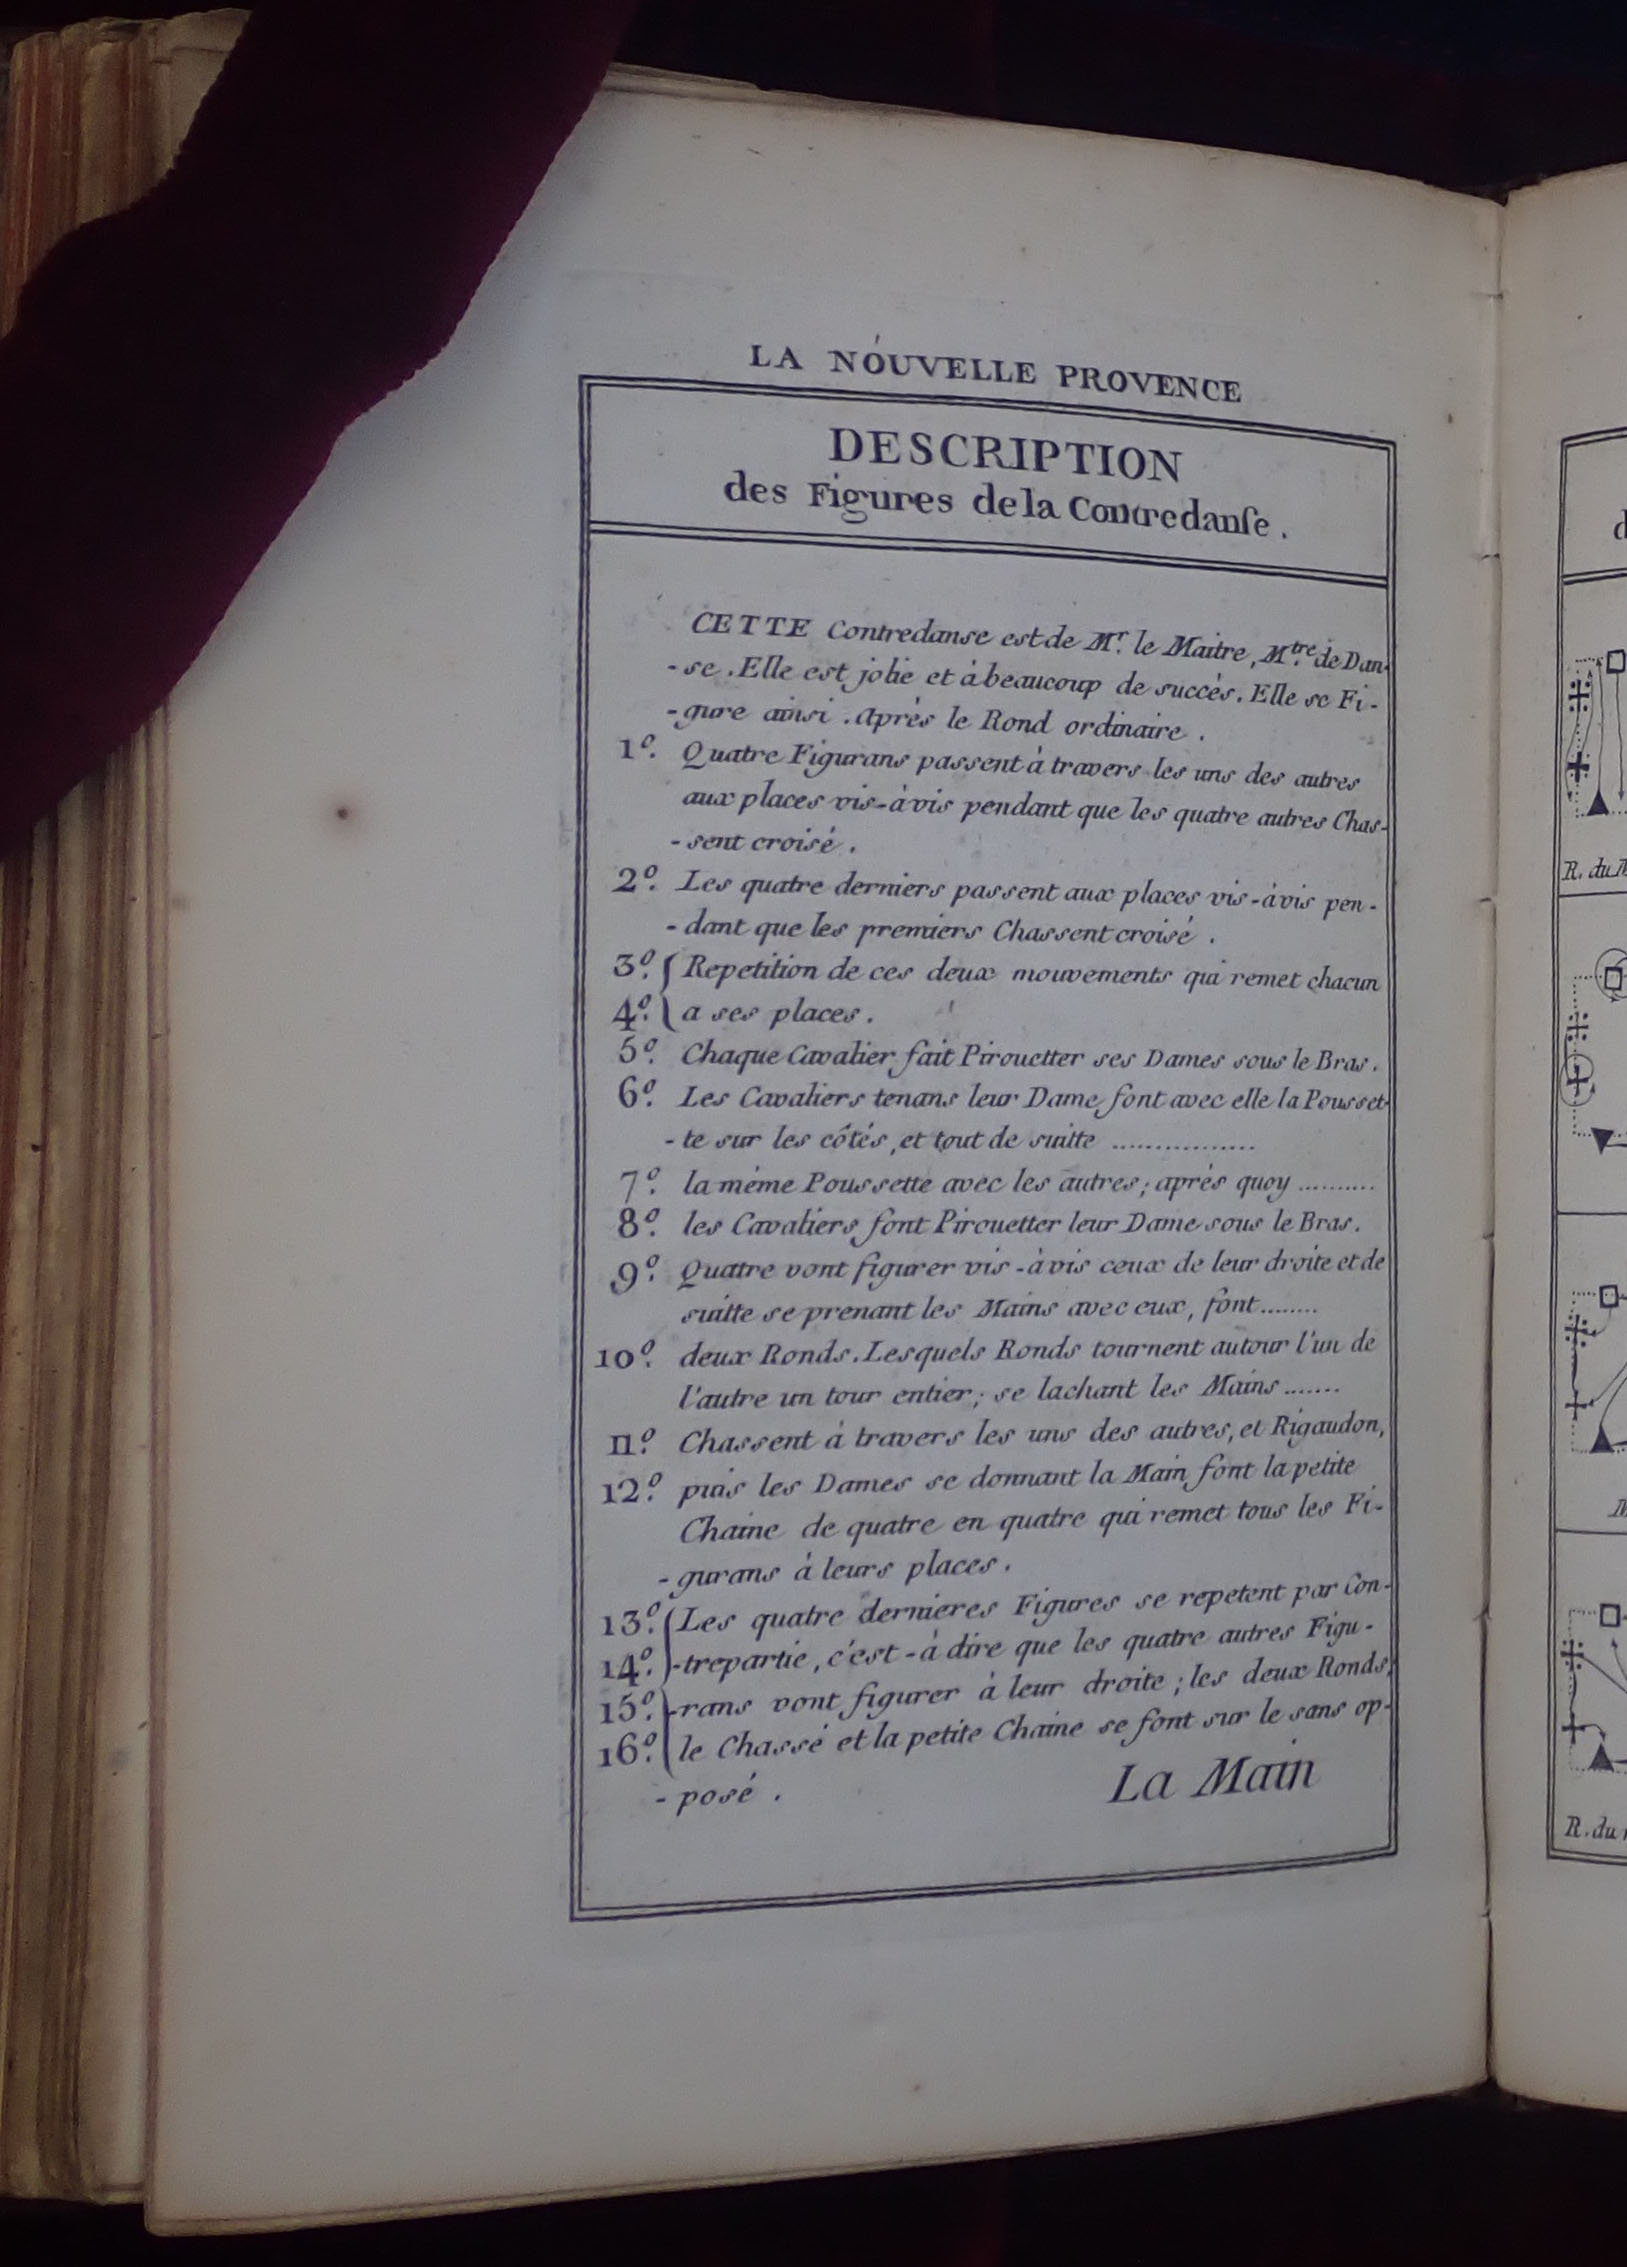 LA NOUVELLE PROVENCE
DESCRIPTION
des Figures de la Contredanſe.
CETTE Contredanse est de Mr. le Maitre, Mtre. de Dan-
-se. Elle est jolie et à beaucoup de succès. Elle se Fi-
-gure ainsi. après le Rond ordinaire.
1º. Quatre Figurans passent à travers les uns des autres
aux places vis-à vis pendant que les quatre autres Chas-
-sent croisé.
2º. Les quatre derniers passent aux places vis-à vis pen-
-dant que les premiers Chassent croisé.
3º. { Repetition de ces deux mouvements qui remet chacun
4º. { a ses places.
5º. Chaque Cavalier fait Pirouetter ses Dames sous le Bras.
6º. Les Cavaliers tenans leur Dame font avec elle la Pousset-
-te sur les côtés, et tout de suitte ................
7º. la même Poussette avec les autres; après quoy ..........
8º. les Cavaliers font Pirouetter leur Dame sous le Bras.
9º. Quatre vont figurer vis-à vis ceux de leur droite et de
suitte se prenant les Mains avec eux, font ........
10º. deux Ronds. Lesquels Ronds tournent autour l'un de
l'autre un tour entier; se lachant les Mains .......
11º. Chassent à travers les uns des autres, et Rigaudon,
12º. puis les Dames se donnant la Main font la petite
Chaine de quatre en quatre qui remet tous les Fi-
-gurans à leurs places.
13º. { Les quatre dernieres Figures se repetent par Con-
14º. -trepartie, c'est-à dire que les quatre autres Figu-
15º. -rans vont figurer à leur droite; les deux Ronds,
16º. le Chassé et la petite Chaine se font sur le sans op-
-posé.
La Main
R. du
M
R. du